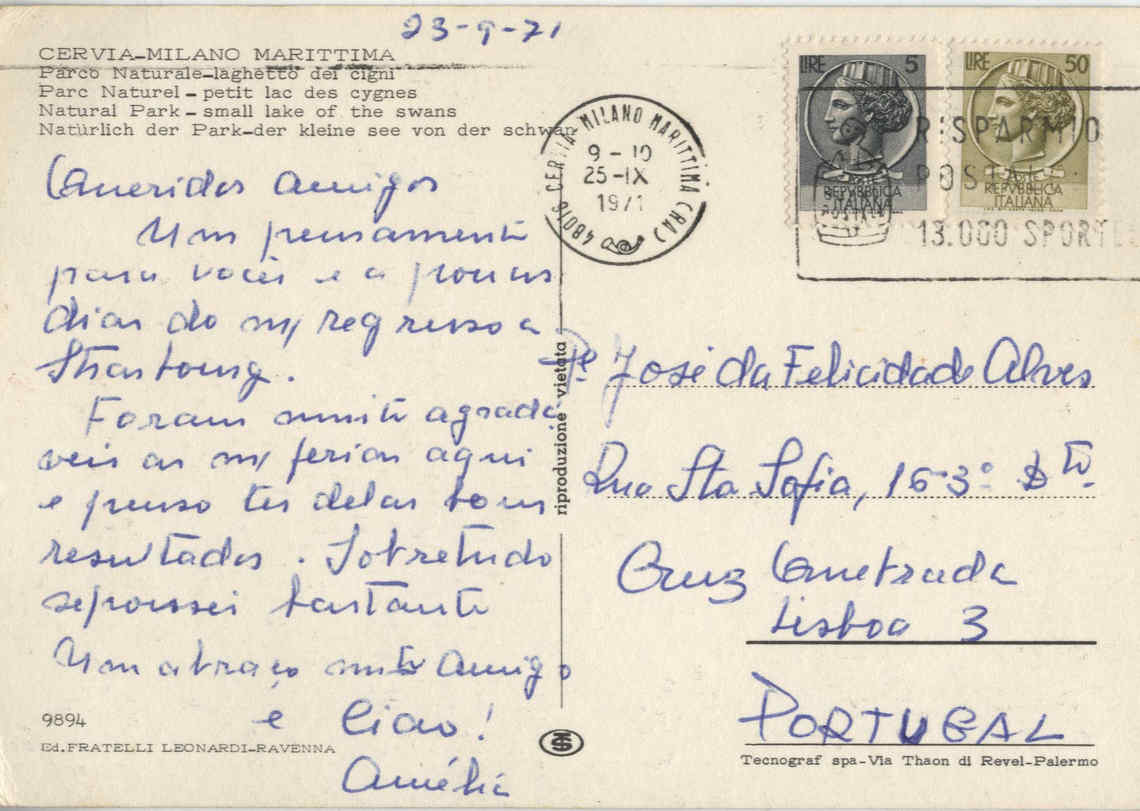 23-9-71
CERVIA-MILANO MARITTIMA
Parco Naturale-laghetto dei cigni
Parc Naturel - petit lac des cygnes
Natural Park - small lake of the swans
Natürlich der Park-der kleine see von der schwan
Queridos amigos
Um pensamento
para vocês e a poucos
dias do m/ regresso a
Strasbourg.
Foram muito agradá-
veis as m/ ferias aqui
e penso ter delas bons
resultados. Sobretudo
repousei bastante
Um abraço muito amigo
e Ciao!
Amélia
9894
Ed.FRATELLI LEONARDI-RAVENNA
riproduzione vietata
48016 CERVIA-MILANO MARITTIMA (RA)
9-10
25-IX
1971
LIRE 5
REPVBBLICA
ITALIANA
LIRE 50
REPVBBLICA
ITALIANA
RISPARMIO
POSTALE
13.000 SPORTE
Pe. José da Felicidade Alves
Rua Sta Sofia, 16-3º Dto.
Cruz Quebrada
Lisboa 3
PORTUGAL
Tecnograf spa-Via Thaon di Revel-Palermo